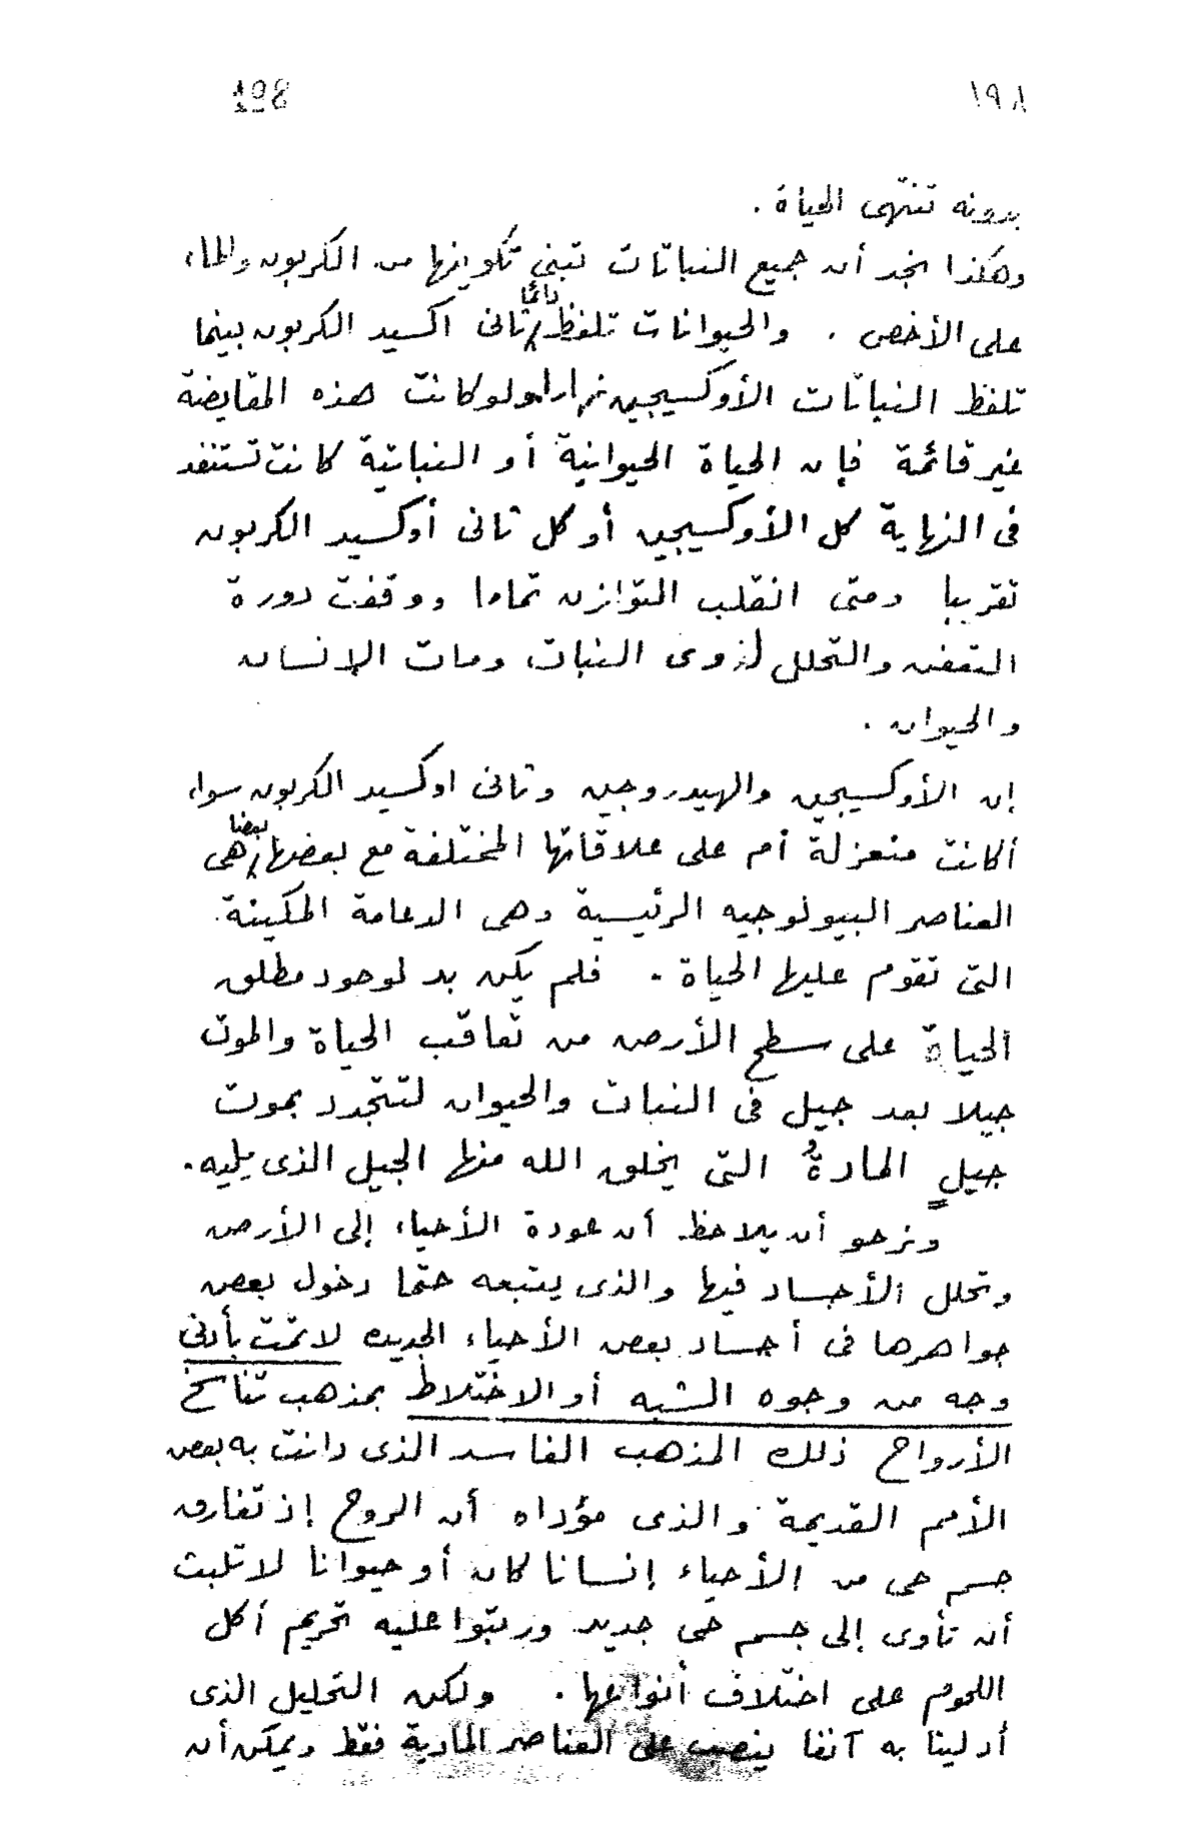 198 ١٩٨
بدونه تنتهى الحياة .
وهكذا نجد أن جميع النباتات تبنى تكوينها من الكربون والماء
على الأخص . والحيوانات تلفظ دائما ثانى اكسيد الكربون بينما
تلفظ النباتات الأوكسيجين نهارا ولو كانت هذه المقايضة
غير قائمة فإن الحياة الحيوانية أو النباتية كانت تستنفد
فى النهاية كل الأوكسيجين أو كل ثانى أوكسيد الكربون
تقريبا ومتى انقلب التوازن تماما ووقفت دورة
التعفن والتحلل لذوى النبات ومات الإنسان
والحيوان .
إن الأوكسيجين والهيدروجين وثانى اوكسيد الكربون سواء
أكانت منعزلة أم على علاقاتها المختلفة مع بعضها بعضا هى
العناصر البيولوجيه الرئيسية وهى الدعامة المكينة
التى تقوم عليها الحياة . فلم يكن بد لوجود مطلق
الحياة على سطح الأرض من تعاقب الحياة والموت
جيلا بعد جيل فى النبات والحيوان لتتجدد بموت
جيلٍ المادةُ التى يخلق الله منها الجيل الذى يليه .
ونرجو أن يلاحظ أن عودة الأحياء إلى الأرض
وتحلل الأجساد فيها والذى يتبعه حتما دخول بعض
جواهرها فى أجساد بعض الأحياء الجديده لا تمت بأدنى
وجه من وجوه الشبه أو الاختلاط بمذهب تناسخ
الأرواح ذلك المذهب الفاسد الذى دانت به بعض
الأمم القديمة والذى مؤداه أن الروح إذ تفارق
جسم حى من الأحياء إنسانا كان أو حيوانا لا تلبث
أن تأوى إلى جسم حى جديد ورتبوا عليه تحريم أكل
اللحوم على اختلاف أنواعها . ولكن التحليل الذى
أدلينا به آنفا ينصب على العناصر المادية فقط ويمكن أن